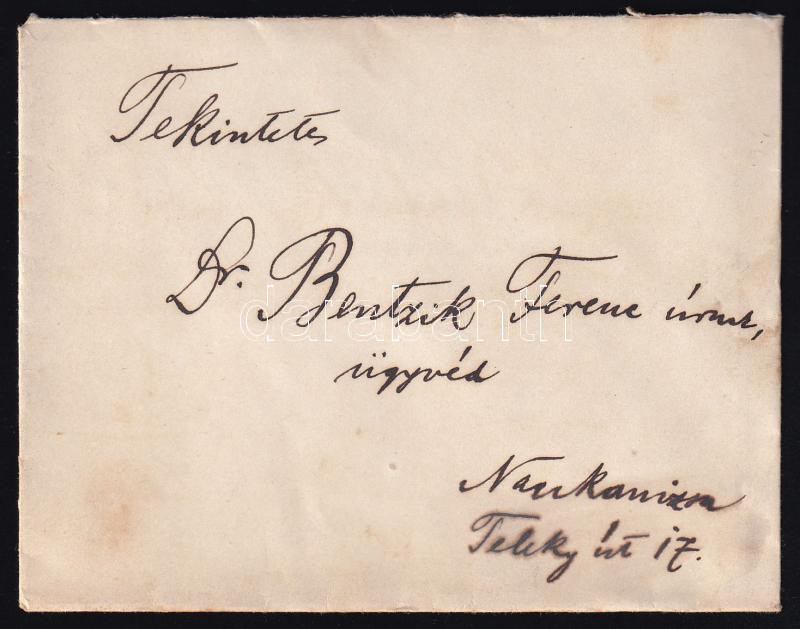 Tekintetes
Dr. Bentzik Ferenc úrnak,
ügyvéd
Nagykanizsa
Teleky út 17.
darabanth